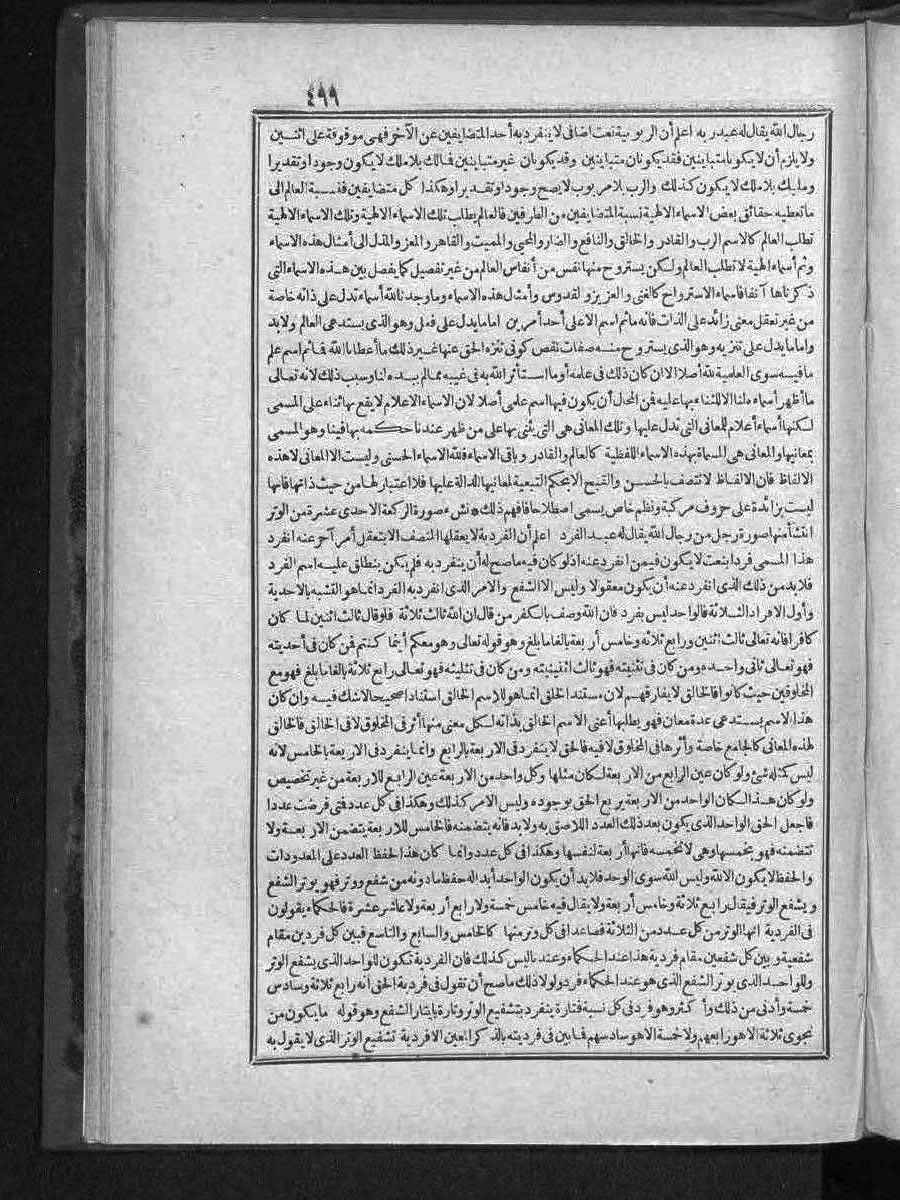 ٤٩٩
رجال الله يقال له عبد ربه اعلم أن الربوبية نعت اضافى لا ينفرد به أحد المتضايفين عن الآخر فهى موقوفة على اثنين
ولا يلزم أن لا يكونا متباينين فقد يكونان متباينين وقد يكونان غير متباينين فالك بلا ملك لا يكون وجودا وتقديرا
ومليك بلا ملك لا يكون كذلك والرب بلا مربوب لا يصح وجودا وتقديرا وهكذا كل متضايفين فنسبة العالم الى
ما تعطيه حقائق بعض الاسماء الالهية نسبة المتضايفين من الطرفين فالعالم يطلب تلك الاسماء الالهية وتلك الاسماء الالهية
تطلب العالم كالاسم الرب والقادر والخالق والنافع والضار والمحيى والمميت والقاهر والمعز والمذل الى أمثال هذه الاسماء
وثم أسماء الهية لا تطلب العالم ولكن يستروح منها نفس من أنفاس العالم من غير تفصيل كما يفصل بين هذه الاسماء التى
ذكرناها آنفا فاسماء الاسترواح كالغنى والعزيز والقدوس وأمثال هذه الاسماء وما وجدنا لله أسماء تدل على ذاته خاصة
من غير تعقل معنى زائد على الذات فانه ما ثم اسم الا على أحد أمرين اما ما يدل على فعل وهو الذى يستدعى العالم ولا بد
واما ما يدل على تنزيه وهو الذى يستروح منه صفات نقص كونى تنزه الحق عنها غير ذلك ما أعطانا الله فما ثم اسم علم
ما فيه سوى العلمية لله أصلا الا ان كان ذلك فى علمه أو ما استأثر الله به فى غيبه مما لم يبده لنا وسبب ذلك لانه تعالى
ما أظهر أسماءه لنا الا للثناء بها عليه فن المحال أن يكون فيها اسم علمى أصلا لان الاسماء الاعلام لا يقع بها ثناء على المسمى
لكنها أسماء أعلام للمعانى التى تدل عليها وتلك المعانى هى التى يثنى بها على من ظهر عندنا حكمه بها فينا وهو المسمى
بمعانيها والمعانى هى المسماة بهذه الاسماء اللفظية كالعالم والقادر وباقى الاسماء فلله الاسماء الحسنى وليست الا المعانى لا هذه
الالفاظ فان الالفاظ لا تتصف بالحسن والقبح الا بحكم التبعية لمعانيها الدالة عليها فلا اعتبار لها من حيث ذاتها فانها
ليست بزائدة على حروف مركبة ونظم خاص يسمى اصطلاحا فافهم ذلك * نشء صورة الركعة الاحدى عشرة من الوتر
انتشأ منها صورة رجل من رجال الله يقال له عبد الفرد اعلم أن الفردية لا يعقلها المنصف الا بتعقل أمر آخر عنه انفرد
هذا المسمى فردا بنعت لا يكون فيمن انفرد عنه اذ لو كان فيه ما صح له أن ينفرد به فلم يكن ينطلق عليه اسم الفرد
فلا بد من ذلك الذى انفرد عنه أن يكون معقولا وليس الا الشفع والامر الذى انفرد به الفرد انما هو التشبه بالاحدية
وأول الافراد الثلاثة فالواحد ليس بفرد فان الله وصف بالكفر من قال ان الله ثالث ثلاثة فلو قال ثالث اثنين لما كان
كافرا فانه تعالى ثالث اثنين ورابع ثلاثة وخامس أربعة بالغا ما بلغ وهو قوله تعالى وهو معكم أينما كنتم فن كان فى أحديته
فهو تعالى ثانى واحده ومن كان فى تثنيته فهو ثالث اثنينيته ومن كان فى تثليثه فهو تعالى رابع ثلاثة بالغا ما بلغ فهو مع
المخلوقين حيث كانوا فالخالق لا يفارقهم لان مستند الخلق انما هو للاسم الخالق استنادا صحيحا لا شك فيه وان كان
هذا الاسم يستدعى عدة معان فهو يطلبها أعنى الاسم الخالق بذاته لكل معنى منها أثر فى المخلوق لا فى الخالق فالخالق
لهذه المعانى كالجامع خاصة وأثرها فى المخلوق لا فيه فالحق لا ينفرد فى الاربعة بالرابع وانما ينفرد فى الاربعة بالخامس لانه
ليس كمثله شئ ولو كان عين الرابع من الاربعة لكان مثلها وكل واحد من الاربعة عين الرابع للاربعة من غير تخصيص
ولو كان هذا لكان الواحد من الاربعة يربع الحق بوجوده وليس الامر كذلك وهكذا فى كل عدد فتى فرضت عددا
فاجعل الحق الواحد الذى يكون بعد ذلك العدد اللاصق به ولا بد فانه يتضمنه فالخامس للاربعة يتضمن الاربعة ولا
تتضمنه فهو يخمسها وهى لا تخمسه فانها أربعة لنفسها وهكذا فى كل عدد وانما كان هذا لحفظ العدد على المعدودات
والحفظ لا يكون الا لله وليس الله سوى الواحد فلا بد أن يكون الواحد أبدا له حفظ ما دونه من شفع ووتر فهو يوتر الشفع
ويشفع الوتر فيقال رابع ثلاثة وخامس أربعة ولا يقال فيه خامس خمسة ولا رابع أربعة ولا عاشر عشرة فالحكماء يقولون
فى الفردية انها الوتر من كل عدد من الثلاثة فصاعدا فى كل وتر منها كالخامس والسابع والتاسع فبين كل فردين مقام
شفعية وبين كل شفعين مقام فردية هذا عند الحكماء وعندنا ليس كذلك فان الفردية تكون للواحد الذى يشفع الوتر
وللواحد الذى يوتر الشفع الذى هو عند الحكماء فرد ولولا ذلك ما صح أن تقول فى فردية الحق انه رابع ثلاثة وسادس
خمسة وأدنى من ذلك وأكثر وهو فرد فى كل نسبة فتارة ينفرد بتشفيع الوتر وتارة بايتار الشفع وهو قوله ما يكون من
نجوى ثلاثة الا هو رابعهم ولا خمسة الا هو سادسهم فابين فى فرديته بالذكر العين الافردية تشفيع الوتر الذى لا يقول به